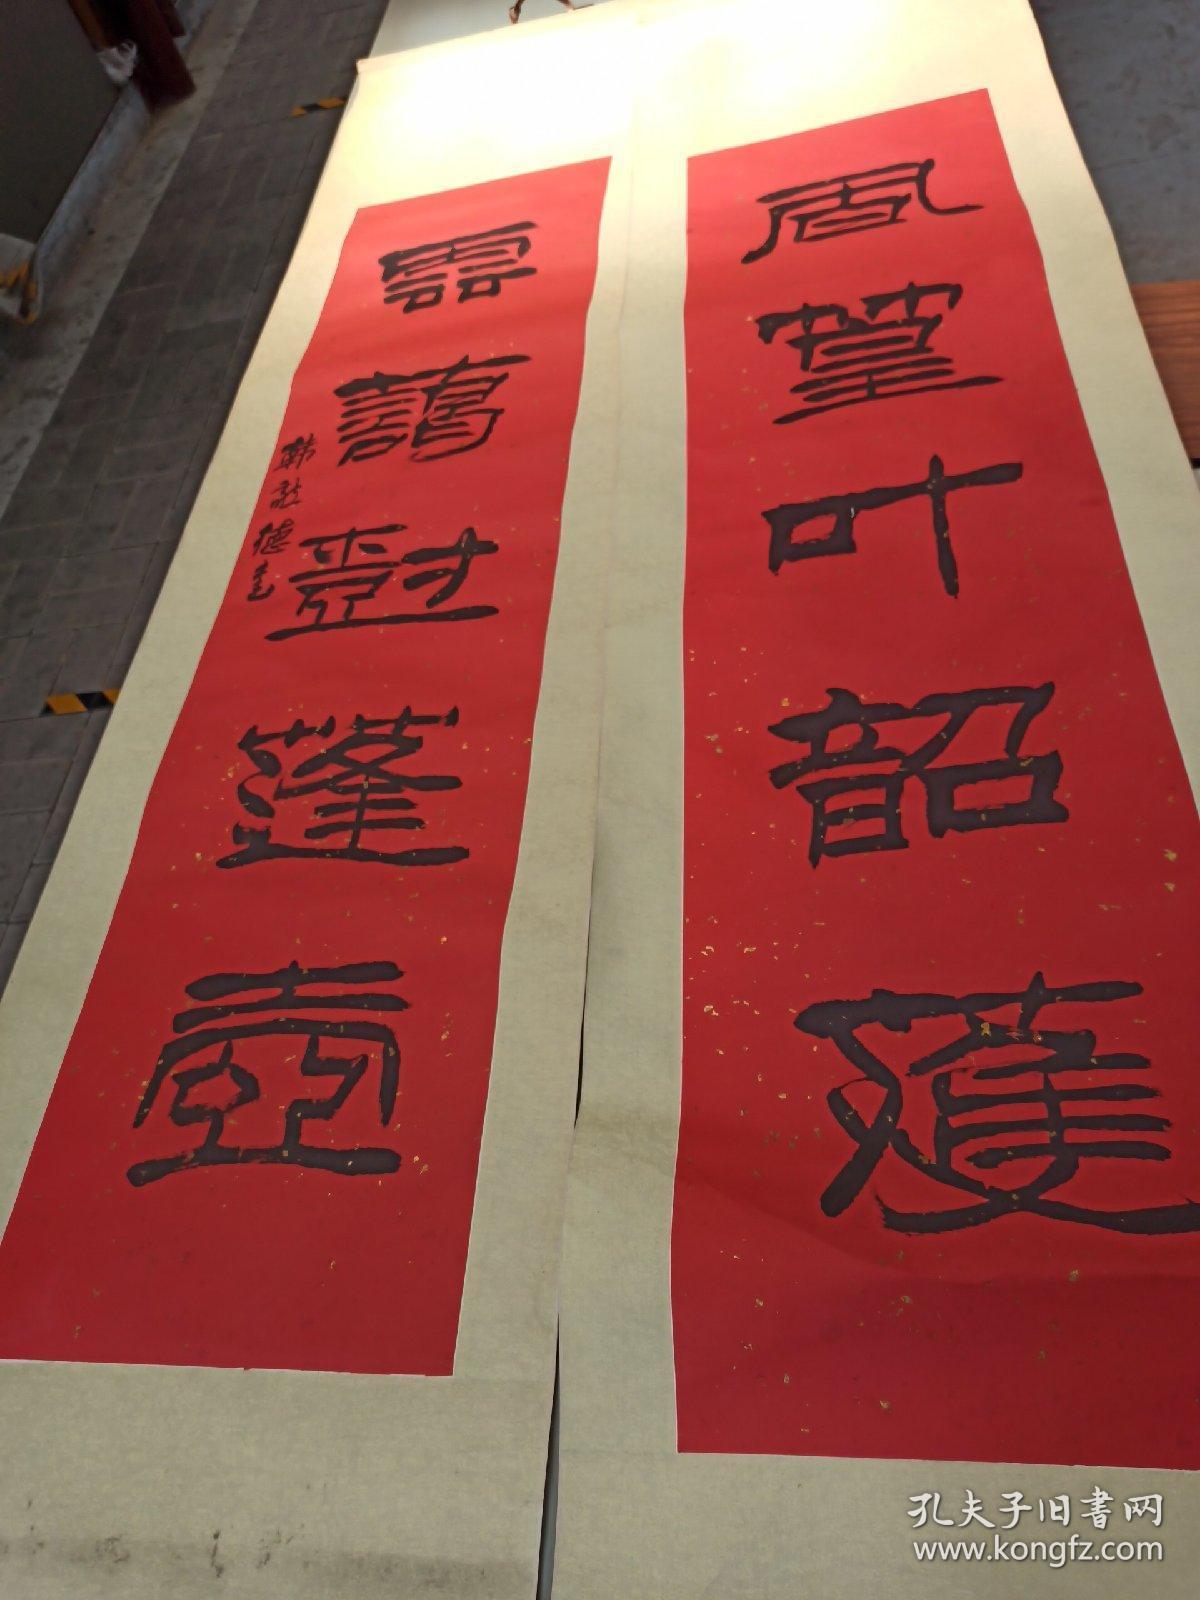 風篁叶韶
雲藹對蓬壺
韩德书
孔夫子旧书网
www.kongfz.com